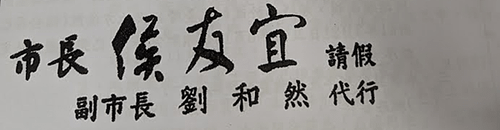 市長 侯友宜 請假
副市長 劉和然 代行